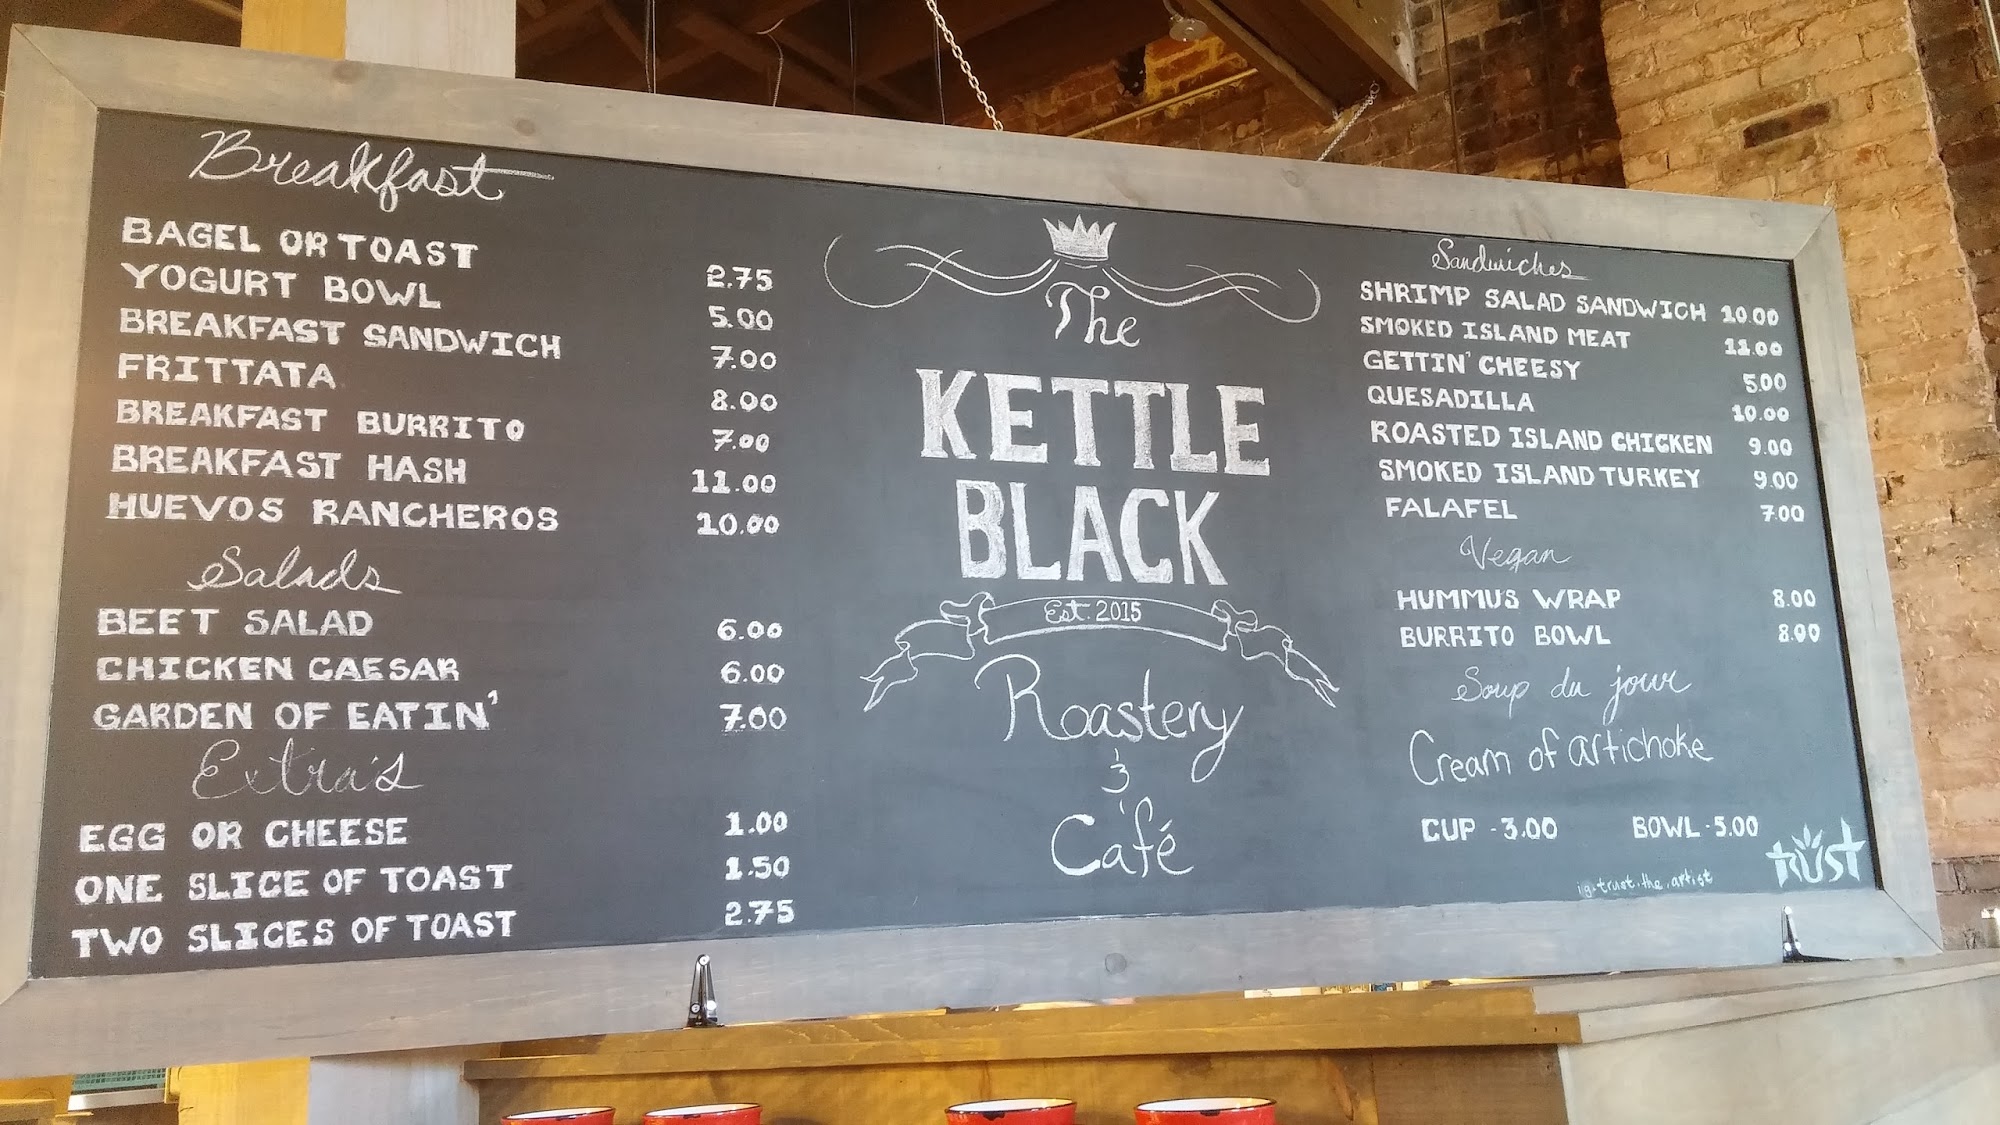 Breakfast
BAGEL OR TOAST 2.75
YOGURT BOWL 5.00
BREAKFAST SANDWICH 7.00
FRITTATA 8.00
BREAKFAST BURRITO 7.00
BREAKFAST HASH 11.00
HUEVOS RANCHEROS 10.00
Salads
BEET SALAD 6.00
CHICKEN CAESAR 6.00
GARDEN OF EATIN' 7.00
Extra's
EGG OR CHEESE 1.00
ONE SLICE OF TOAST 1.50
TWO SLICES OF TOAST 2.75
The
KETTLE
BLACK
Est. 2015
Roastery
&
Café
Sandwiches
SHRIMP SALAD SANDWICH 10.00
SMOKED ISLAND MEAT 11.00
GETTIN' CHEESY 5.00
QUESADILLA 10.00
ROASTED ISLAND CHICKEN 9.00
SMOKED ISLAND TURKEY 9.00
FALAFEL 7.00
Vegan
HUMMUS WRAP 8.00
BURRITO BOWL 8.00
Soup du jour
Cream of artichoke
CUP - 3.00 BOWL - 5.00
ig-trust.the.artist
trust